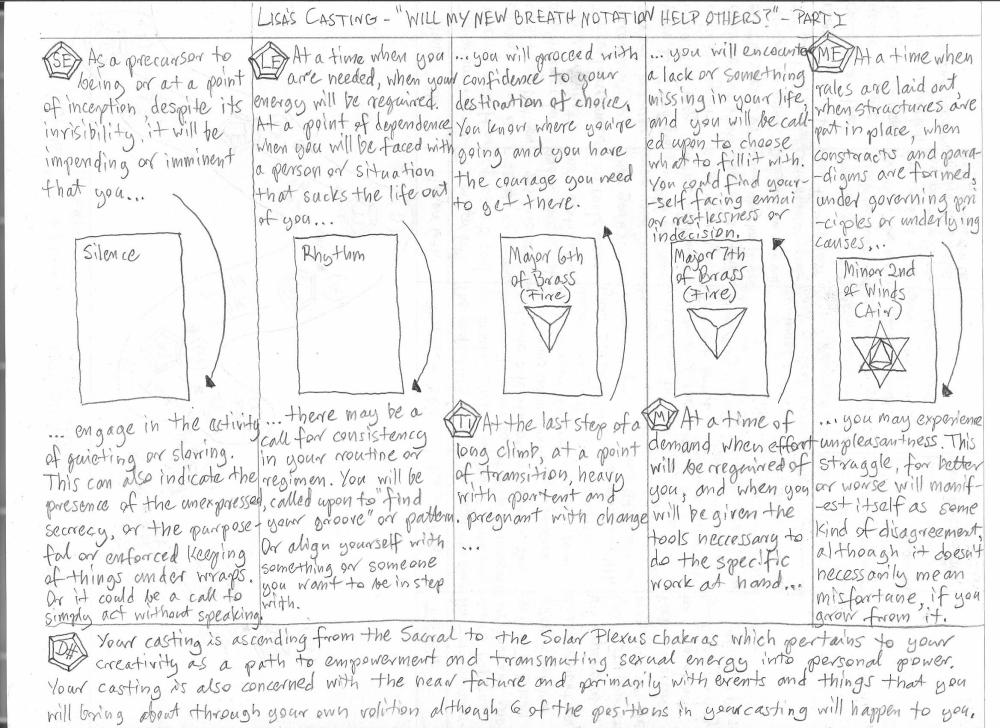 LISA'S CASTING - "WILL MY NEW BREATH NOTATION HELP OTHERS?" - PART I
SE As a precursor to
being or at a point
of inception, despite its
invisibility, it will be
impending or imminent
that you...
Silence
... engage in the activity
of quieting or slowing.
This can also indicate the
presence of the unexpressed,
secrecy, or the purpose-
ful or enforced keeping
of things under wraps.
Or it could be a call to
simply act without speaking.
LE At a time when you
are needed, when your
energy will be required.
At a point of dependence
when you will be faced with
a person or situation
that sucks the life out
of you...
Rhythm
...there may be a
call for consistency
in your routine or
regimen. You will be
called upon to "find
your groove" or pattern.
Or align yourself with
something or someone
you want to be in step
with.
...you will proceed with
confidence to your
destination of choice.
You know where you're
going and you have
the courage you need
to get there.
Major 6th
of Brass
(Fire)
TI At the last step of a
long climb, at a point
of transition, heavy
with portent and
pregnant with change
...
...you will encounter
a lack or something
missing in your life,
and you will be call-
ed upon to choose
what to fill it with.
You could find your-
-self facing ennui
or restlessness or
indecision.
Major 7th
of Brass
(Fire)
MI At a time of
demand when effort
will be required of
you, and when you
will be given the
tools neccessary to
do the specific
work at hand...
ME At a time when
rules are laid out,
when structures are
put in place, when
constructs and para-
-digms are formed,
under governing prin
-ciples or underlying
causes...
Minor 2nd
of Winds
(Air)
...you may experience
unpleasantness. This
struggle, for better
or worse will manif-
-est itself as some
kind of disagreement,
although it doesn't
necessarily mean
misfortune, if you
grow from it.
D# Your casting is ascending from the Sacral to the Solar Plexus chakras which pertains to your
creativity as a path to empowerment and transmuting sexual energy into personal power.
Your casting is also concerned with the near future and primarily with events and things that you
will bring about through your own volition although 6 of the positions in your casting will happen to you.